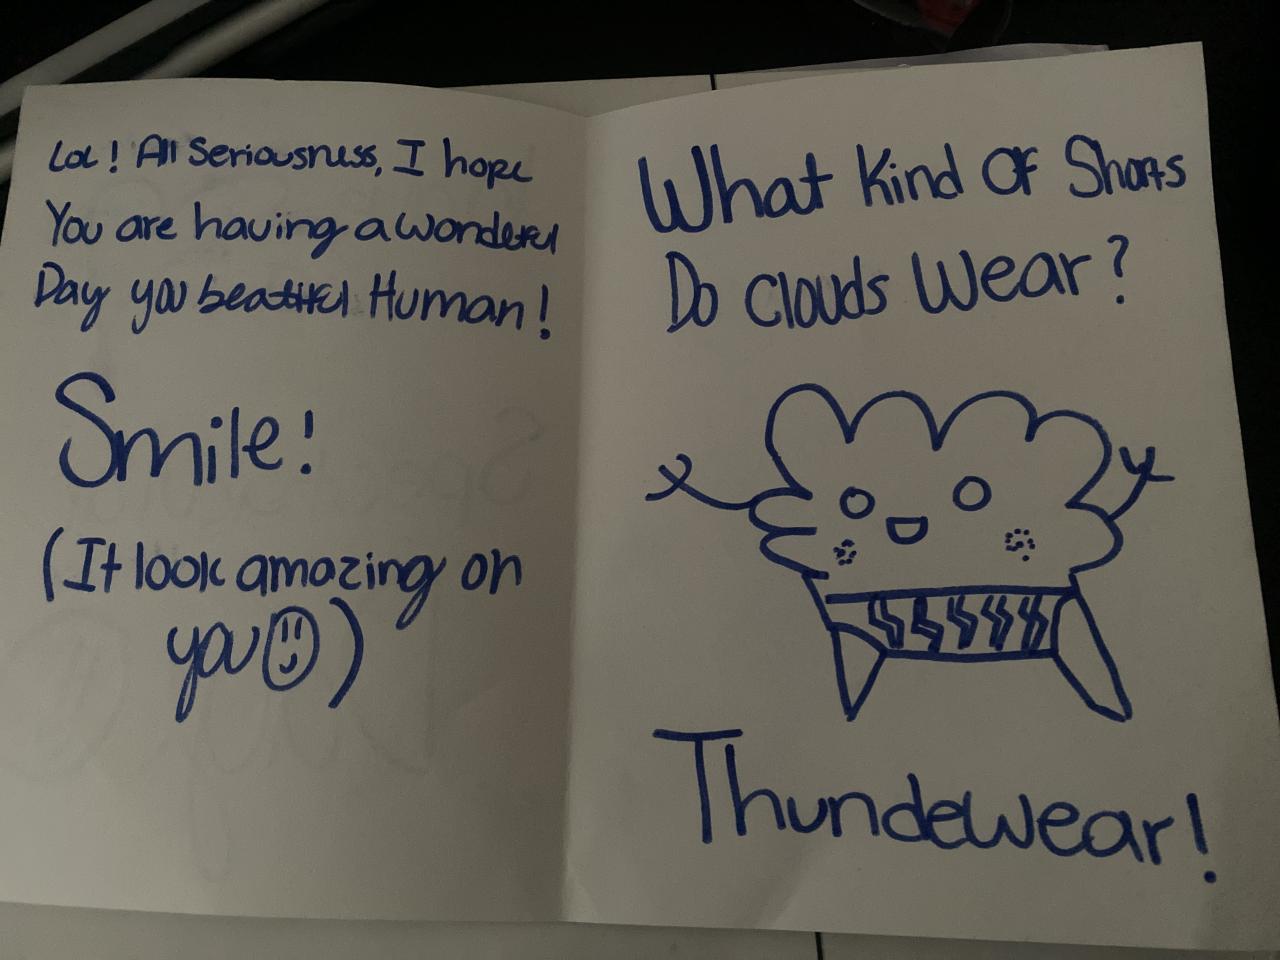 Lol! All Seriousness, I hope
You are having a wonderful
Day you beatiful Human!
Smile!
(It look amazing on
you)
What Kind Of Shorts
Do Clouds Wear?
Thundewear!